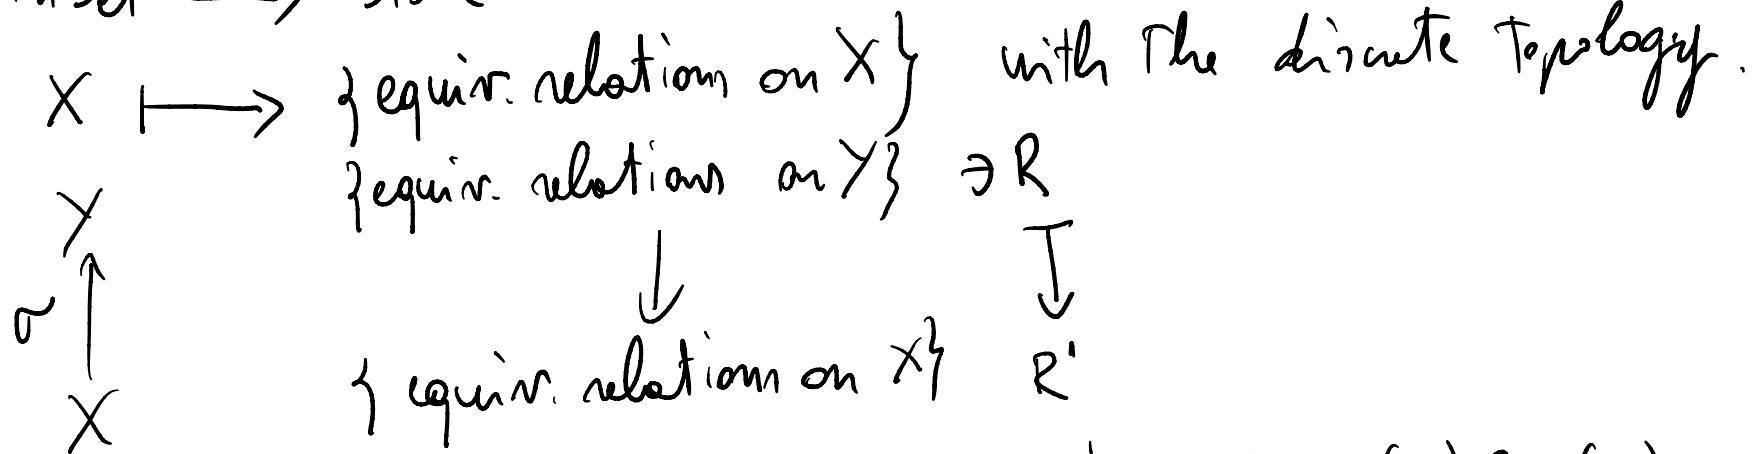 X ⟼ { equiv. relations on X } with the discrete topology.
Y { equiv. relations on Y } ∋ R
σ ↑ ↓ ↧
X { equiv. relations on X } R'